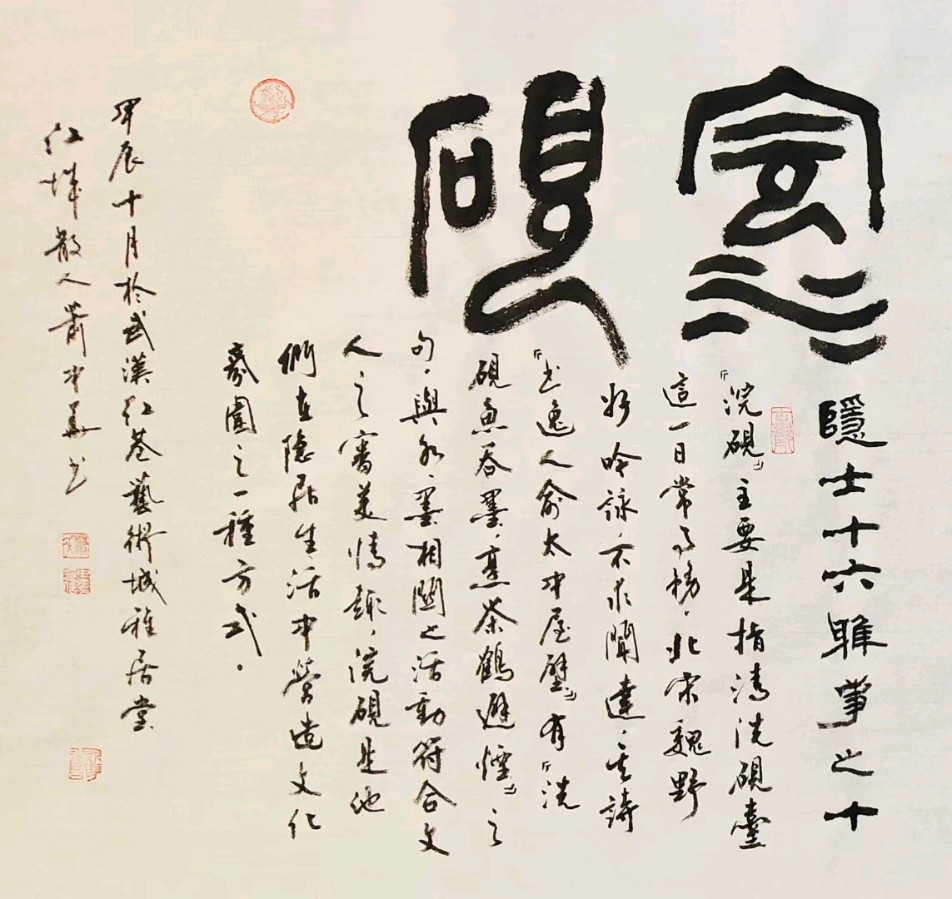 浣硯
隱士十六雅事之十
『浣硯』主要是指清洗硯臺
這一日常事務。北宋魏野
好吟詠，不求聞達，其詩
『书逸人俞太中屋壁』有『洗
硯魚吞墨，烹茶鶴避煙』之
句。與水、墨相關之活動符合文
人之審美情趣，浣硯是他
們在隐居生活中營造文化
氛圍之一種方式。
甲辰十月於武漢红巷藝術城雅居堂
江城散人蕭中華书